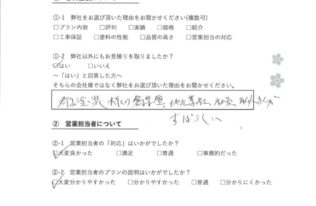 ①-1 弊社をお選び頂いた理由をお聞かせください(複数可)
□プラン内容 □評判 □実績 □価格 □紹介
□工事保証 □塗料の性能 □品質の高さ □営業担当の対応
①-2 弊社以外にもお見積りを取りましたか?
□はい □いいえ
~「はい」と回答した方へ
そちらの会社様ではなく弊社をお選び頂いた理由をお聞かせください。
すばらしい
② 営業担当者について
②-1 営業担当者の「対応」はいかがでしたか?
□大変良かった □満足 □普通 □事務的だった
②-2 営業担当者のプランの説明はいかがでしたか?
□大変分かりやすかった □分かりやすかった □普通 □分かりにくかった